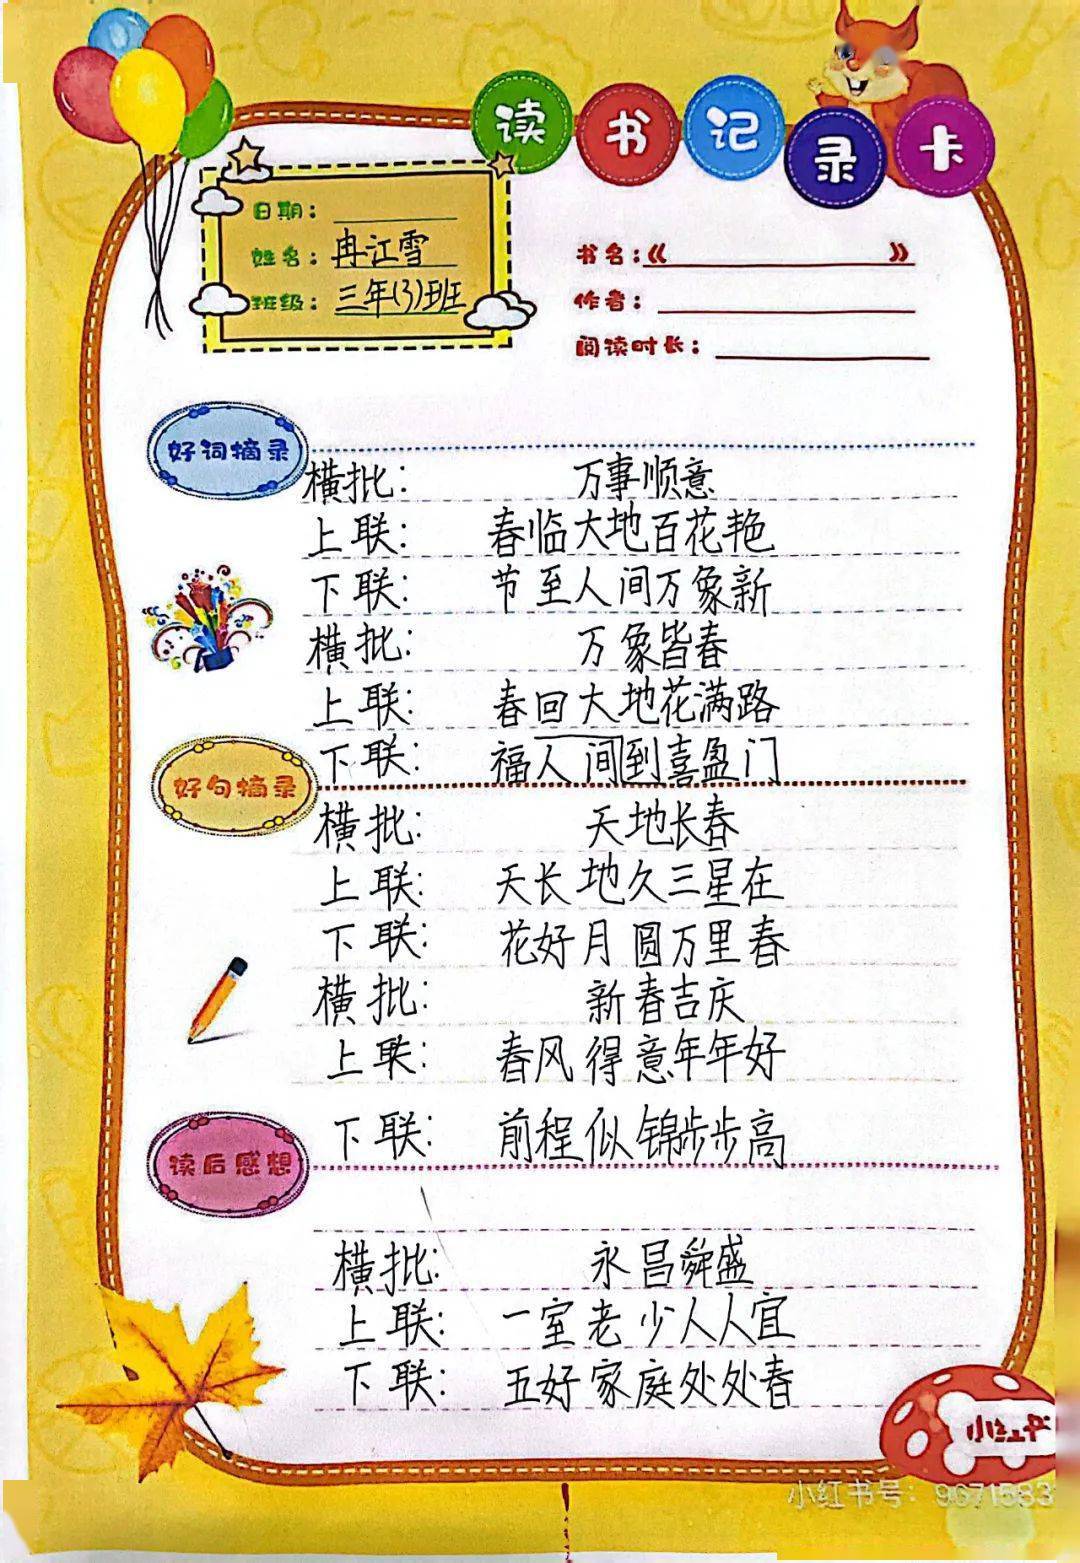 读书记录卡
日期：
姓名：冉江雪
班级：三年(3)班
书名：《 》
作者：
阅读时长：
好词摘录
横批： 万事顺意
上联： 春临大地百花艳
下联： 节至人间万象新
横批： 万象皆春
上联： 春回大地花满路
下联： 福人间到喜盈门
好句摘录
横批： 天地长春
上联： 天长地久三星在
下联： 花好月圆万里春
横批： 新春吉庆
上联： 春风得意年年好
下联： 前程似锦步步高
读后感想
横批： 永昌舜盛
上联： 一室老少人人宜
下联： 五好家庭处处春
小红书
小红书号：9671583